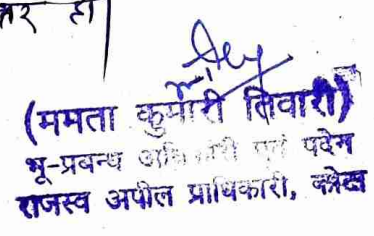 हो
(ममता कुमारी तिवारी)
भू-प्रबन्ध अधिकारी एवं पदेन
राजस्व अपील प्राधिकारी,